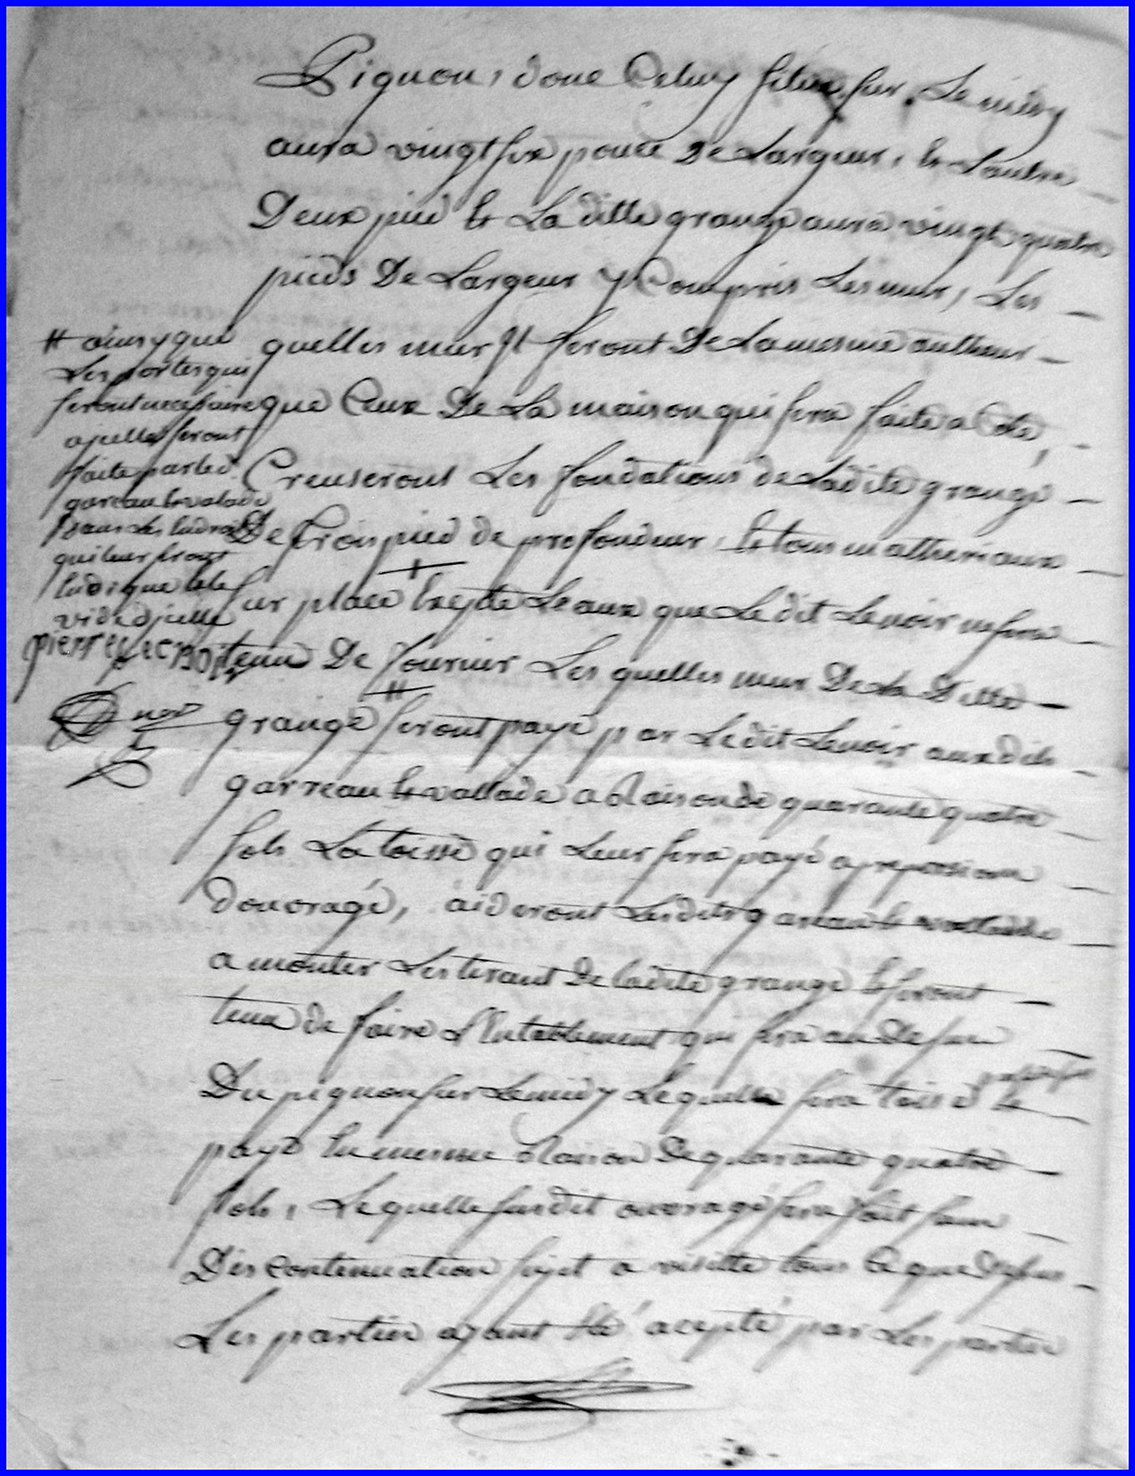 Pignon, donc Celuy situé sur Le midy
aura vingt six pouce De Largeur, et Lautre
Deux pied et La ditte grange aura vingt quatre
pieds De Largeur y Compris Les mur, Les
quelles mur st seront De La mesmeautheur
que Ceux De La maison qui sera faite a Coté,
Creuseront Les fondations de Ladite grange
De trois pied de profondeur, et tous matheriaux
sur place et Leaux que Ledit Lenoir
tenu De fournir Les quelles mur De La Ditte
grange seront payé par Ledit Lenoir auxdits
garreau et vallade a Raison de quarante quatre
sols La toisse qui Leur sera payé a
douvragé, aideront Lesdits gareau et valladde
a monter Les tirant De ladite grange et seront
tenu de faire L'Entablement qui sera au Dessus
Du pignon sur Le midy Lequelle sera toisé et
payé En mesme Raison De quarante quatre
sols, Lequelle susdit ouvragé sera fait sans
Discontinuation sujet a visitte tous Ce que Dessus
Les parties ayant Eté acepté par Les parties
# ainsy que
Les portes qui
seront necessaire
a icelle seront
faite par les
gareau et valade
dans les Endroits
qui leur seront
Indiqué et le
vide d'icelle
pierre lecnoir